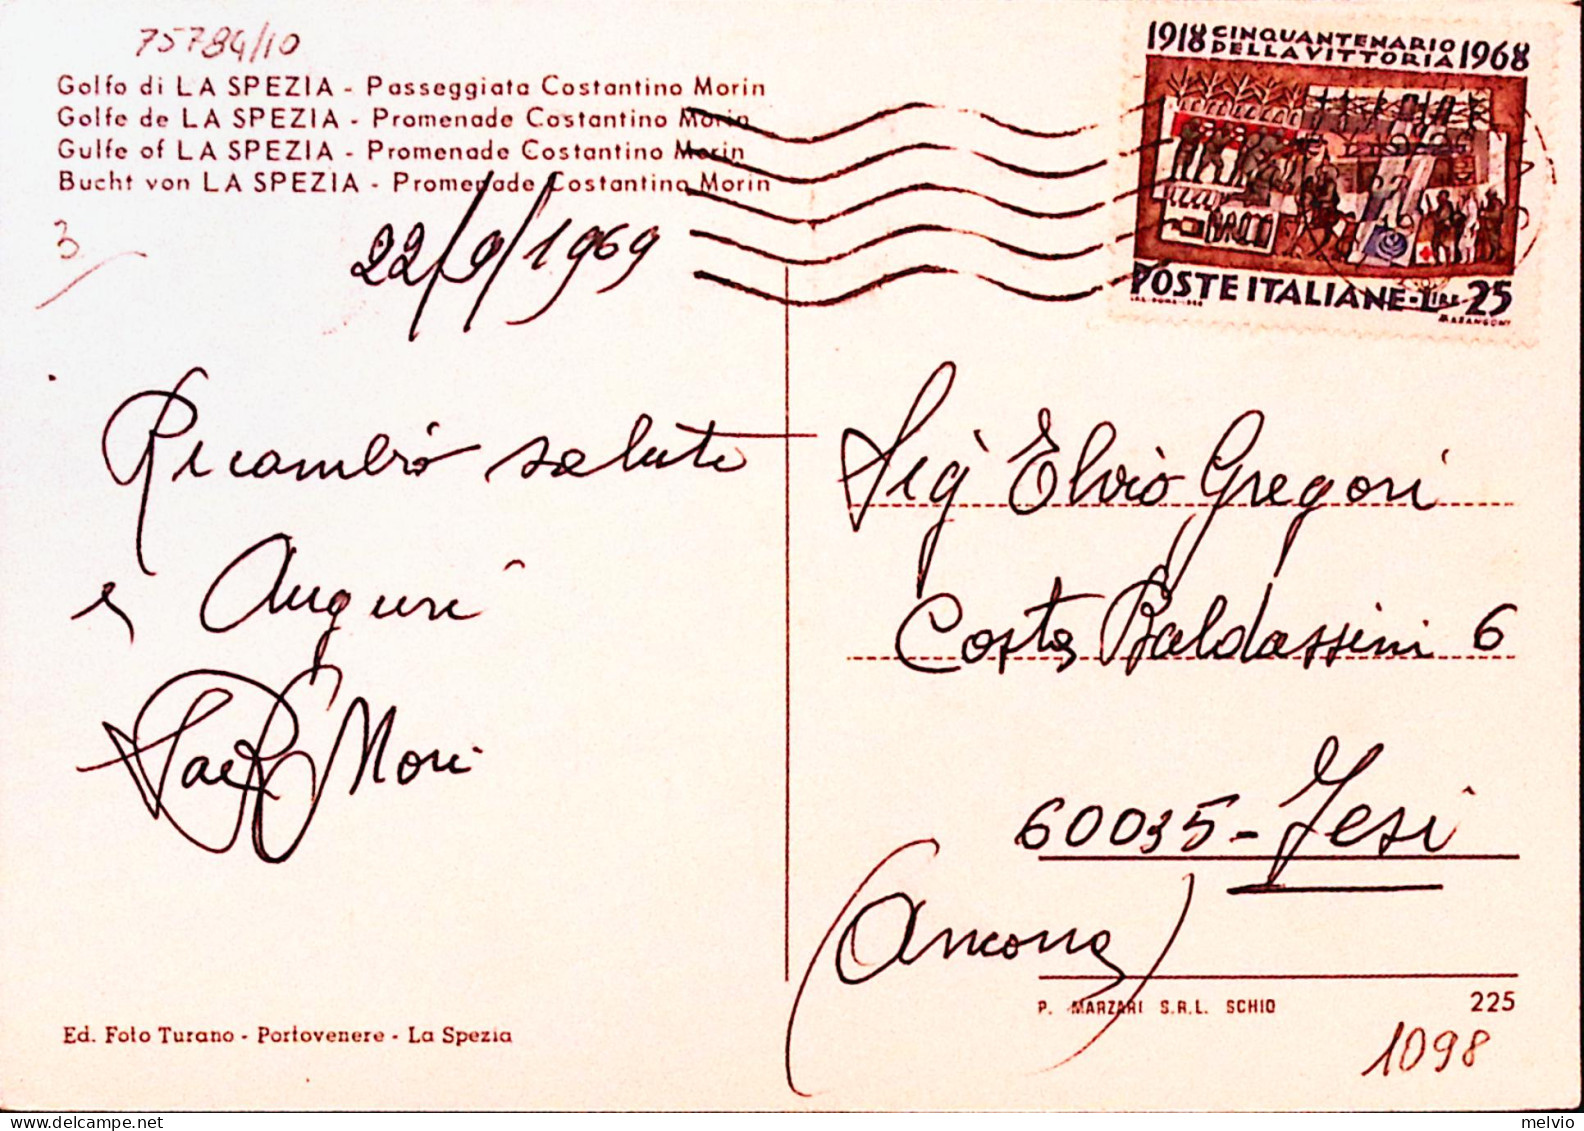 75784/10
Golfo di LA SPEZIA - Passeggiata Costantino Morin
Golfe de LA SPEZIA - Promenade Costantino Morin
Gulfe of LA SPEZIA - Promenade Costantino Morin
Bucht von LA SPEZIA - Promenade Costantino Morin
3
22/9/1969
1918 CINQUANTENARIO DELLA VITTORIA 1968
POSTE ITALIANE - LIRE 25
MARANGONI
Ricambio saluti
e Auguri
Mori
Sig Elvio Gregori
Costa Baldassini 6
60035 - Jesi
(Ancona)
P. MARZARI S.R.L. SCHIO 225
Ed. Foto Turano - Portovenere - La Spezia
1098
melvio